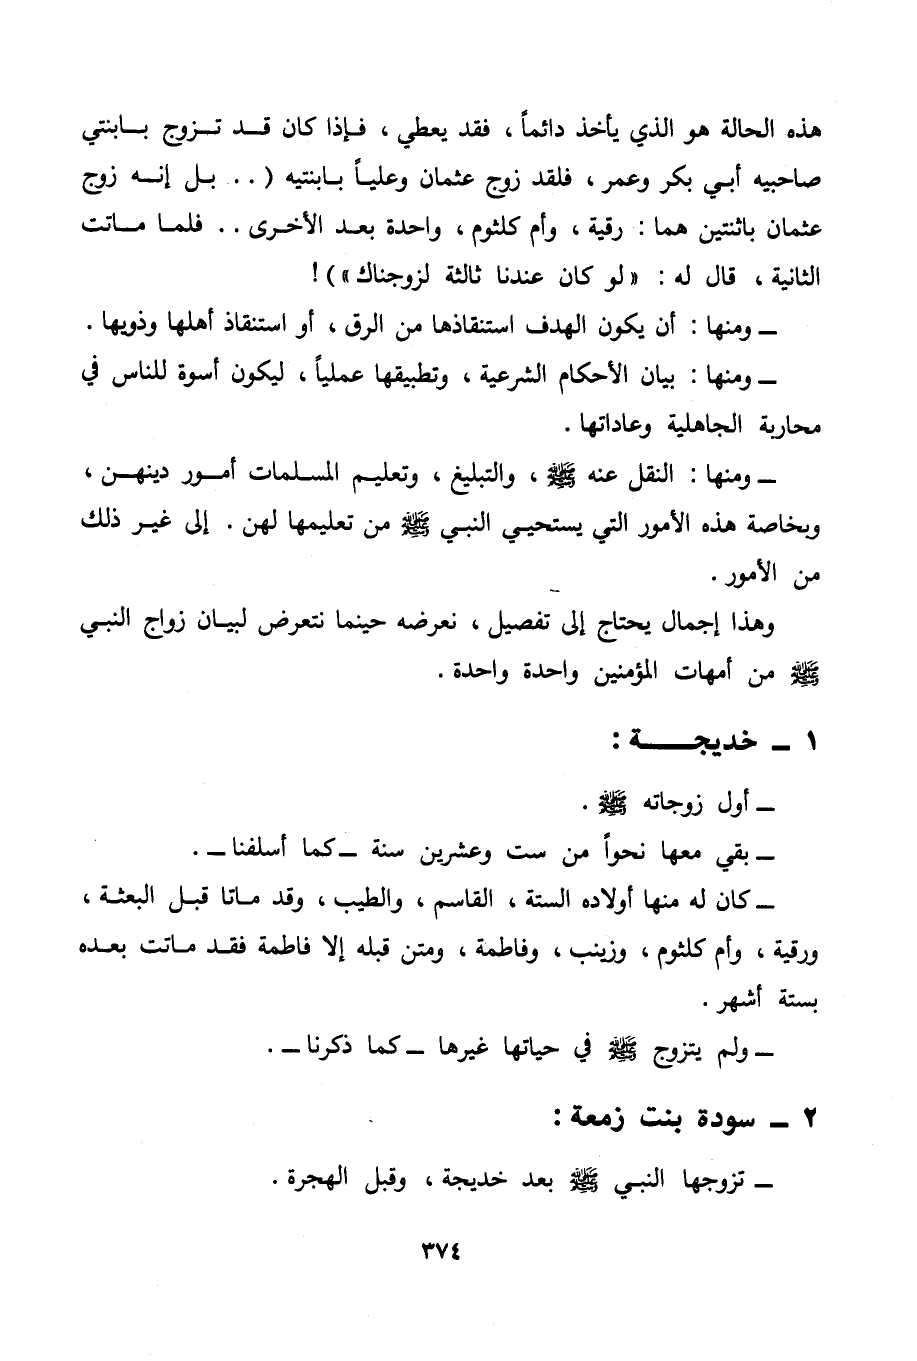 هذه الحالة هو الذي يأخذ دائماً ، فقد يعطي ، فإذا كان قد تزوج بابنتي
صاحبيه أبي بكر وعمر ، فلقد زوج عثمان وعلياً بابنتيه ( .. بل إنه زوج
عثمان باثنتين هما : رقية ، وأم كلثوم ، واحدة بعد الأخرى .. فلما ماتت
الثانية ، قال له : « لو كان عندنا ثالثة لزوجناك » ) !
ـ ومنها : أن يكون الهدف استنقاذها من الرق ، أو استنقاذ أهلها وذويها .
ـ ومنها : بيان الأحكام الشرعية ، وتطبيقها عملياً ، ليكون أسوة للناس في
محاربة الجاهلية وعاداتها .
ـ ومنها : النقل عنه ﷺ ، والتبليغ ، وتعليم المسلمات أمور دينهن ،
وبخاصة هذه الأمور التي يستحيي النبي ﷺ من تعليمها لهن . إلى غير ذلك
من الأمور .
وهذا إجمال يحتاج إلى تفصيل ، نعرضه حينما نتعرض لبيان زواج النبي
ﷺ من أمهات المؤمنين واحدة واحدة .
١ ـ خديجـــة :
ـ أول زوجاته ﷺ .
ـ بقي معها نحواً من ست وعشرين سنة ـ كما أسلفنا ـ .
ـ كان له منها أولاده الستة ، القاسم ، والطيب ، وقد ماتا قبل البعثة ،
ورقية ، وأم كلثوم ، وزينب ، وفاطمة ، ومتن قبله إلا فاطمة فقد ماتت بعده
بستة أشهر .
ـ ولم يتزوج ﷺ في حياتها غيرها ـ كما ذكرنا ـ .
٢ ـ سودة بنت زمعة :
ـ تزوجها النبي ﷺ بعد خديجة ، وقبل الهجرة .
٣٧٤